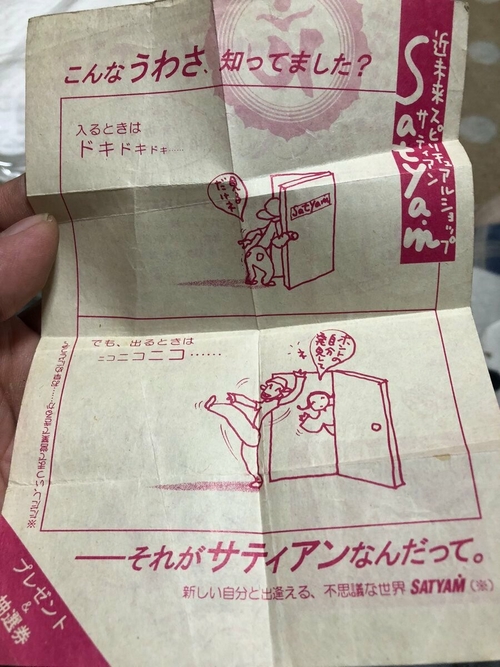 こんなうわさ、知ってました?
近未来スピリチュアルショップ
サティアン
Satyam
入るときは
ドキドキドキ……
Satyam
でも、出るときは
ニコニコニコ……
ホントの
自分
―それがサティアンなんだって。
新しい自分と出逢える、不思議な世界 SATYAM(※)
プレゼント
&
抽選券